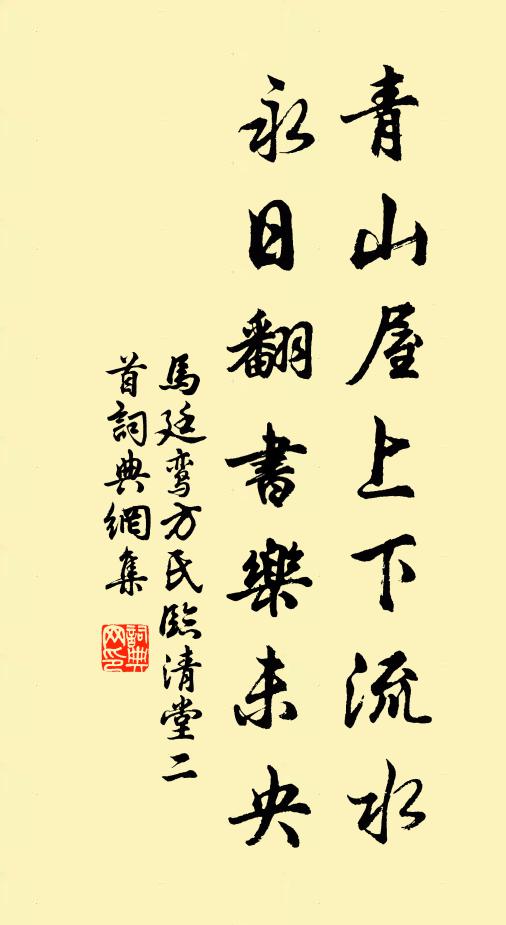 青山屋上下流水
永日翻書樂未央
馬廷鸞方氏臨清堂二
首詞典網集
詞典
网印